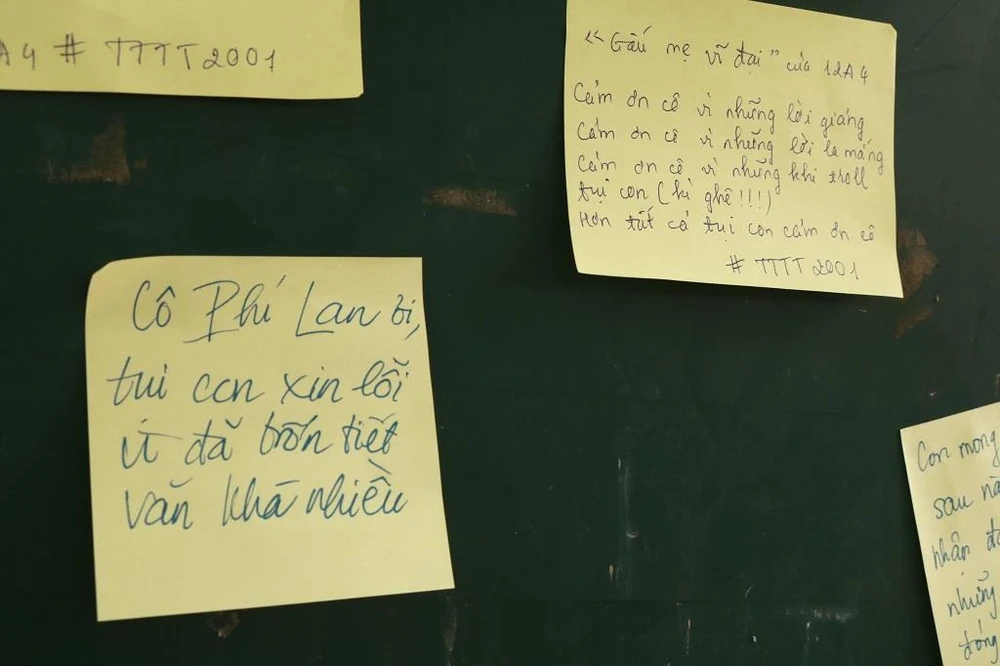 A4 # TTTT2001
"Gấu mẹ vĩ đại" của 12A4
Cảm ơn cô vì những lời giảng
Cảm ơn cô vì những lời la mắng
Cảm ơn cô vì những khi troll
tụi con (hì ghê!!!)
Hơn tất cả tụi con cảm ơn cô
# TTTT2001
Cô Phí Lan ơi,
tui con xin lỗi
vì đã trốn tiết
văn khá nhiều
Con mong
sau nà
nhận đ
những
đóng